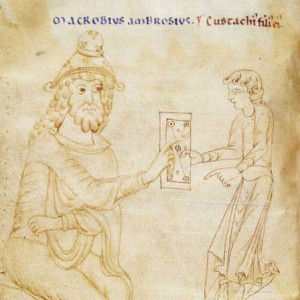 MACROBIUS AMBROSIUS. Eustachi' fili' ei'